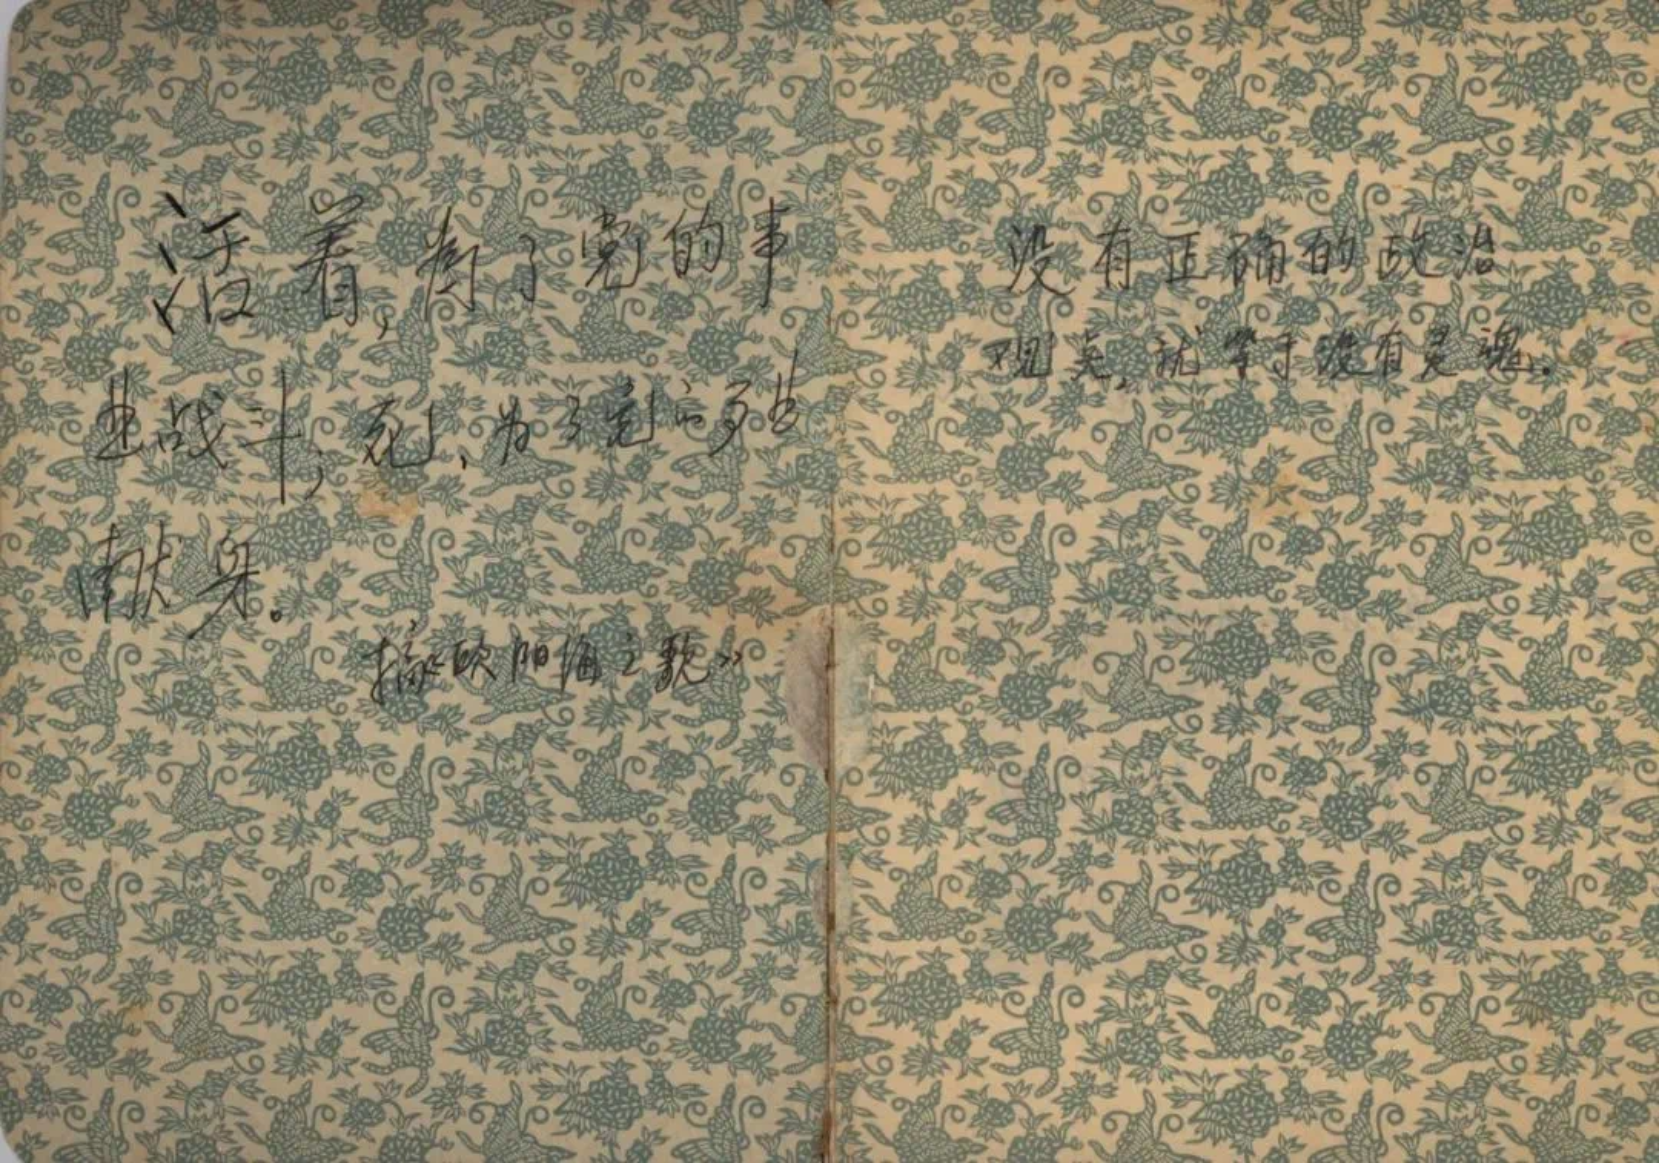 活着,为了党的事
业战斗;死,为了党的事业
献身。
摘《欧阳海之歌》
没有正确的政治
观点,就等于没有灵魂。